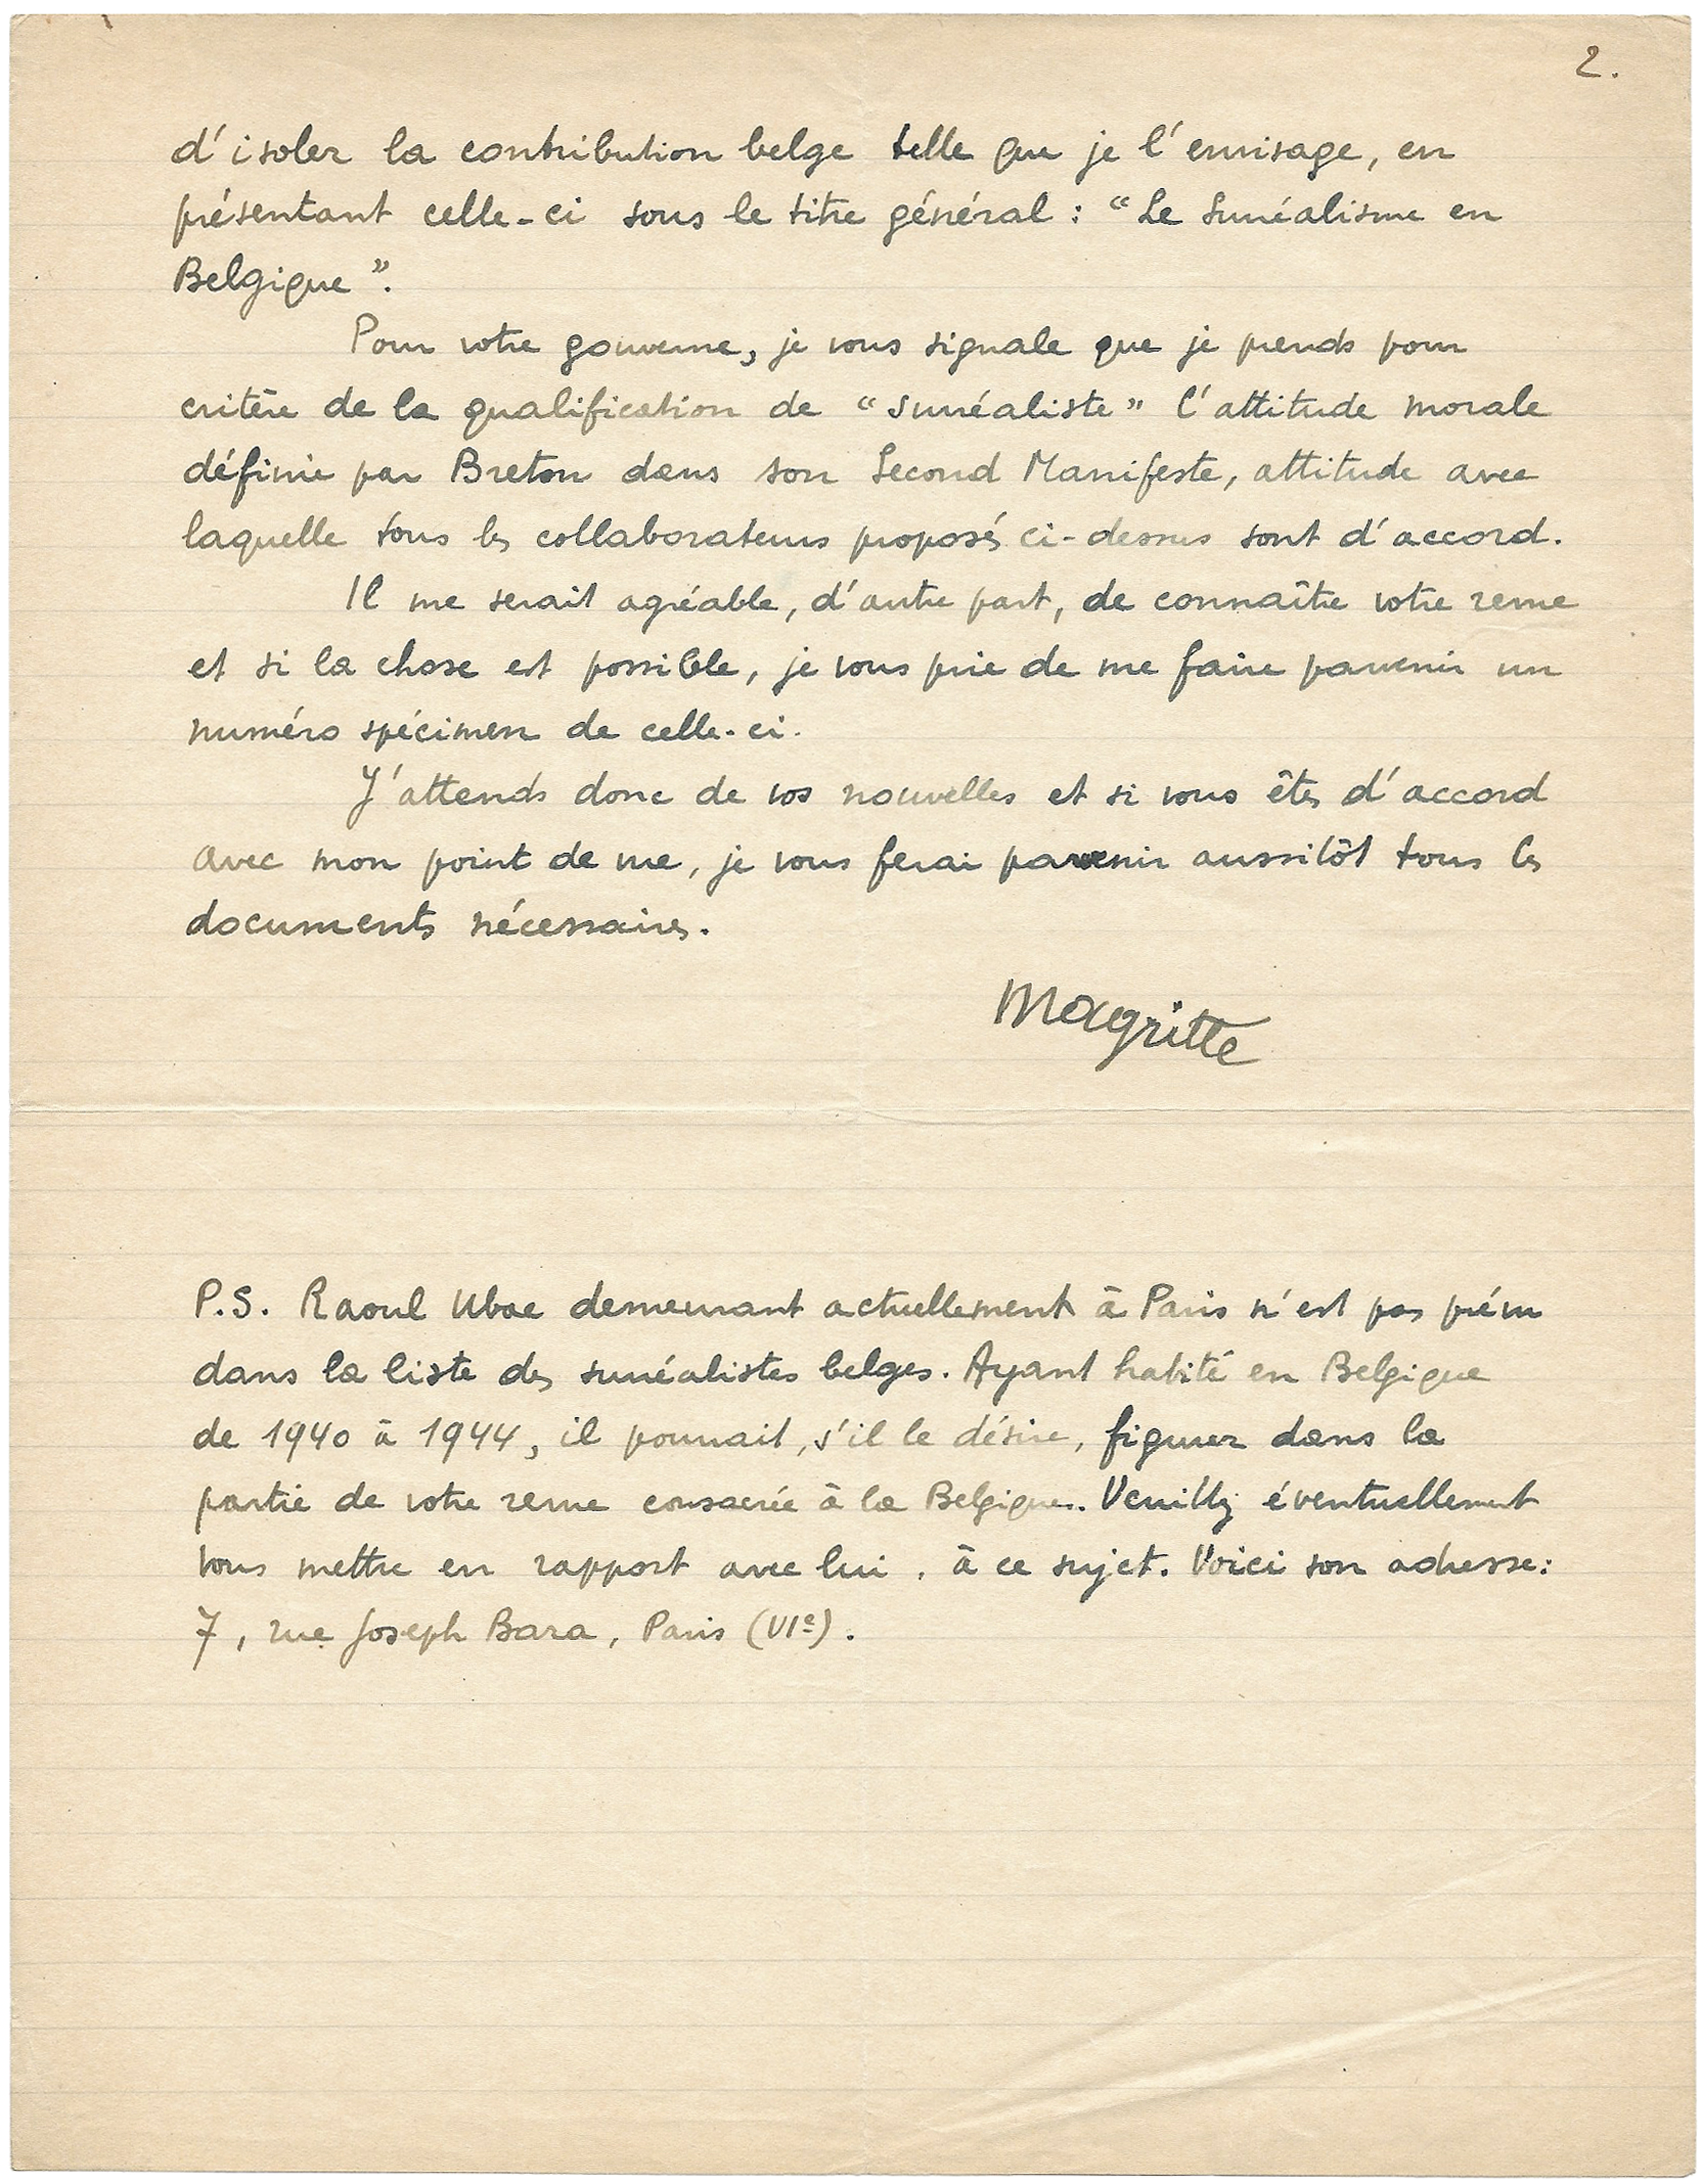 2.
d'isoler la contribution belge telle que je l'envisage, en
présentant celle-ci sous le titre général : “Le Surréalisme en
Belgique”.
Pour votre gouverne, je vous signale que je prends pour
critère de la qualification de “surréaliste” l'attitude morale
définie par Breton dans son Second Manifeste, attitude avec
laquelle tous les collaborateurs proposés ci-dessus sont d'accord.
Il me serait agréable, d'autre part, de connaître votre revue
et si la chose est possible, je vous prie de me faire parvenir un
numéro spécimen de celle-ci.
J'attends donc de vos nouvelles et si vous êtes d'accord
avec mon point de vue, je vous ferai parvenir aussitôt tous les
documents nécessaires.
Magritte
P.S. Raoul Ubac demeurant actuellement à Paris n'est pas prévu
dans la liste des surréalistes belges. Ayant habité en Belgique
de 1940 à 1944, il pourrait, s'il le désire, figurer dans la
partie de votre revue consacrée à la Belgique. Veuillez éventuellement
vous mettre en rapport avec lui, à ce sujet. Voici son adresse:
7, rue Joseph Bara, Paris (VIe).